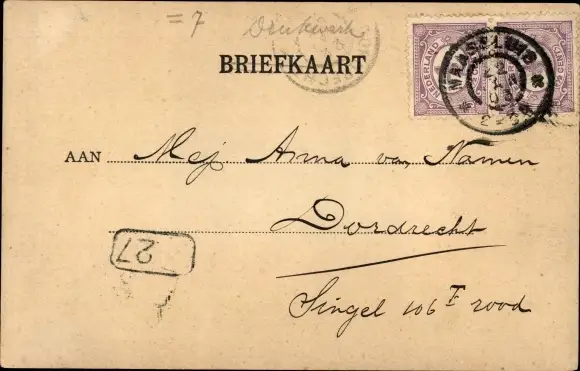 = 7 Drukwerk
BRIEFKAART
NEDERLAND
MAASSLUIS
AAN Mej. Anna van Namen
Dordrecht
27
Singel 106 I rood